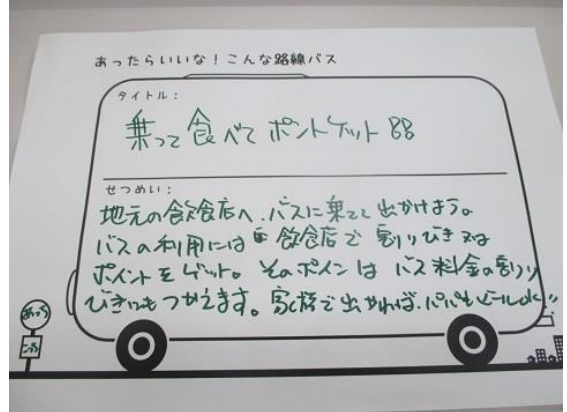 あったらいいな！こんな路線バス
タイトル：
乗って食べてポントゲット
せつめい：
地元の飲食店へ、バスに乗って出かけよう。
バスの利用には飲食店で割りびき又は
ポイントをゲット。そのポインは バス料金の割り
びきにもつかえます。家族で出かれば、パパもビールok!!
あっち
こっち